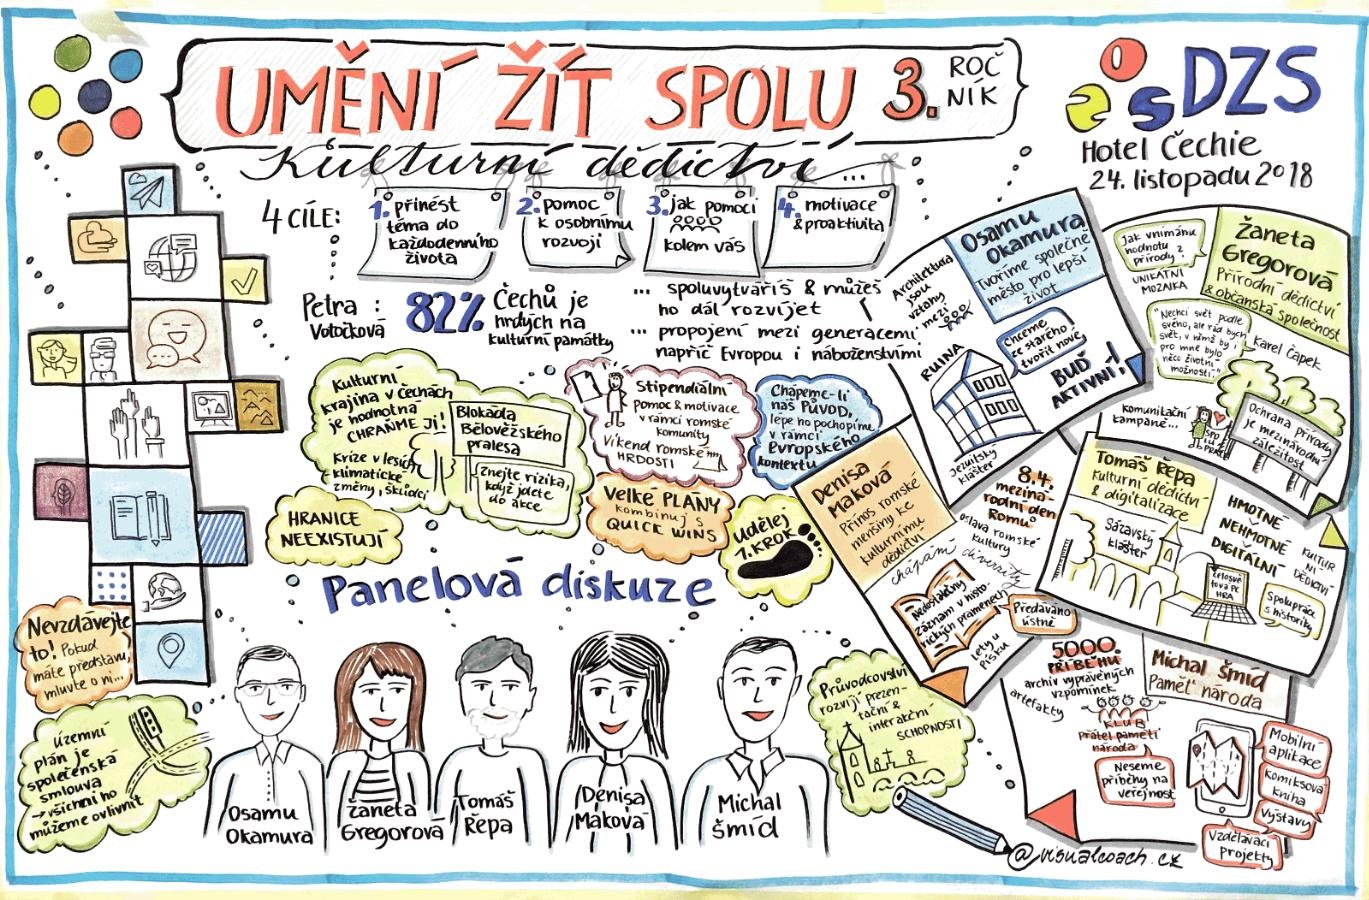 UMĚNÍ ŽÍT SPOLU 3. ROČ
NÍK
Kulturní dědictví...
DZS
Hotel Čechie
24. listopadu 2018
4 CÍLE:
1. přinést
téma do
každodenního
života
2. pomoc
k osobnímu
rozvoji
3. jak pomoci
kolem vás
4. motivace
& proaktivita
Petra :
Votočková
82% Čechů je
hrdých na
kulturní památky
... spoluvytváříš & můžeš
ho dál rozvíjet
... propojení mezi generacemi
napříč Evropou i náboženstvími
Kulturní
krajina v Čechách
je hodnotná
CHRAŇME JI!
Kríze v lesích
klimatické
změny, škůdci
Blokáda
Bělověžského
pralesa
znejte rizika,
když jdete
do akce
HRANICE
NEEXISTUJÍ
Stipendiální
pomoc & motivace
v rámci romské
komunity
Víkend romské
HRDOSTI
Chápeme-li
náš PŮVOD,
lépe ho pochopíme
v rámci
Evropského
kontextu
VELKÉ PLÁNY
kombinuj s
QUICK WINS
Udělej
1. KROK
Panelová diskuze
Nevzdávejte
to! Pokud
máte představu,
mluvte o ní...
Územní
plán je
společenská
smlouva
→ všichni ho
můžeme ovlivnit
Osamu
Okamura
Žaneta
Gregorová
Tomáš
Řepa
Denisa
Maková
Michal
Šmíd
Průvodcovství
rozvíjí prezen-
tační &
interakční
SCHOPNOSTI
Osamu
Okamura
Tvoříme společně
město pro lepší
život
Architektura
jsou
vztahy
mezi
RUINA
Chceme
ze starého
tvořit nové,
BUĎ
AKTIVNÍ!
Jezuitský
klášter
Žaneta
Gregorová
Přírodní dědictví
& občanská společnost
Jak vnímáme
hodnotu
přírody?
UNIKÁTNÍ
MOZAIKA
"Nechci svět podle
svého, ale rád bych
svět, v němž by i
pro mne bylo
něco životní
možnosti."
Karel Čapek
komunikační
kampaně...
Ochrana přírody
je mezinárodní
záležitost
Denisa
Maková
Přínos romské
menšiny ke
kulturnímu
dědictví
8.4.
meziná-
rodní den
Romů
oslava romské
kultury
chápání diverzity
Nedostatečný
záznam v histo-
rických pramenech
Předáváno
ústně
Lety u
Písku
Tomáš Řepa
kulturní dědictví
& digitalizace
Sázavský
klášter
HMOTNÉ
NEHMOTNÉ
DIGITÁLNÍ
KULTUR
NÍ
DĚDICTVÍ
CELOSVĚ
TOVÁ PC
HRA
Spolupráce
s historiky
Michal Šmíd
Paměť národa
5000
PŘÍBĚHŮ
archiv vyprávěných
vzpomínek
artefakty
KLUB
přátel paměti
národa
Neseme
příběhy na
veřejnost
Mobilní
aplikace
komiksová
kniha
výstavy
Vzdělávací
projekty
@visualcoach.cz